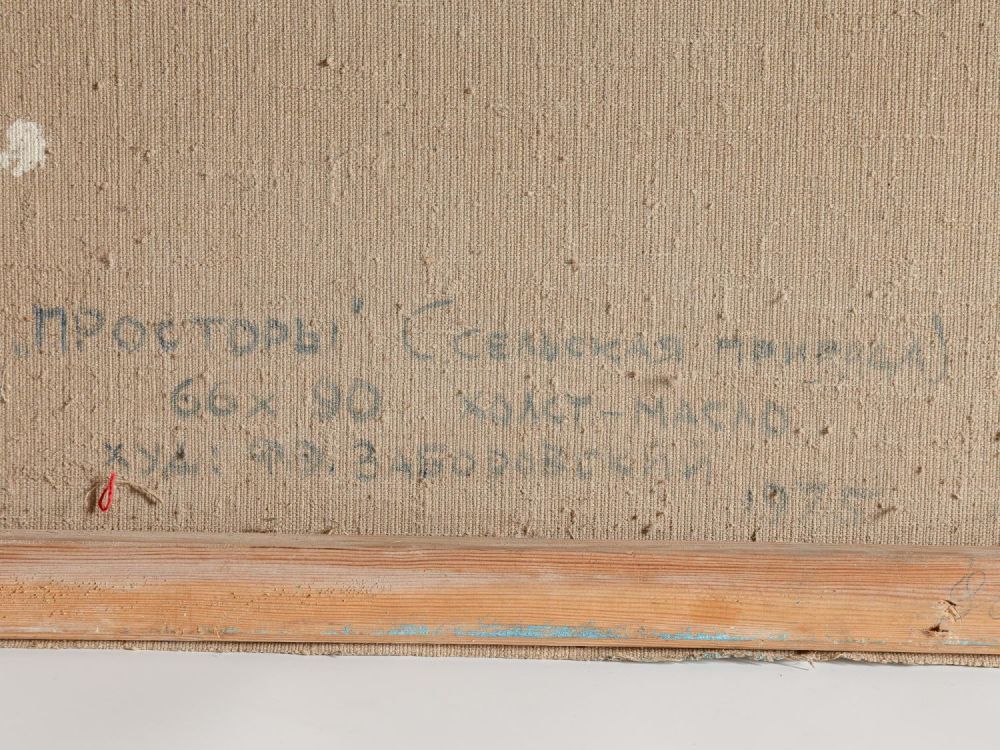 „ПРОСТОРЫ" (СЕЛЬСКАЯ ПРИРОДА)
66 х 90 ХОЛСТ - МАСЛО
ХУД: Ф.Э. ЗАБОРОВСКИЙ
1975